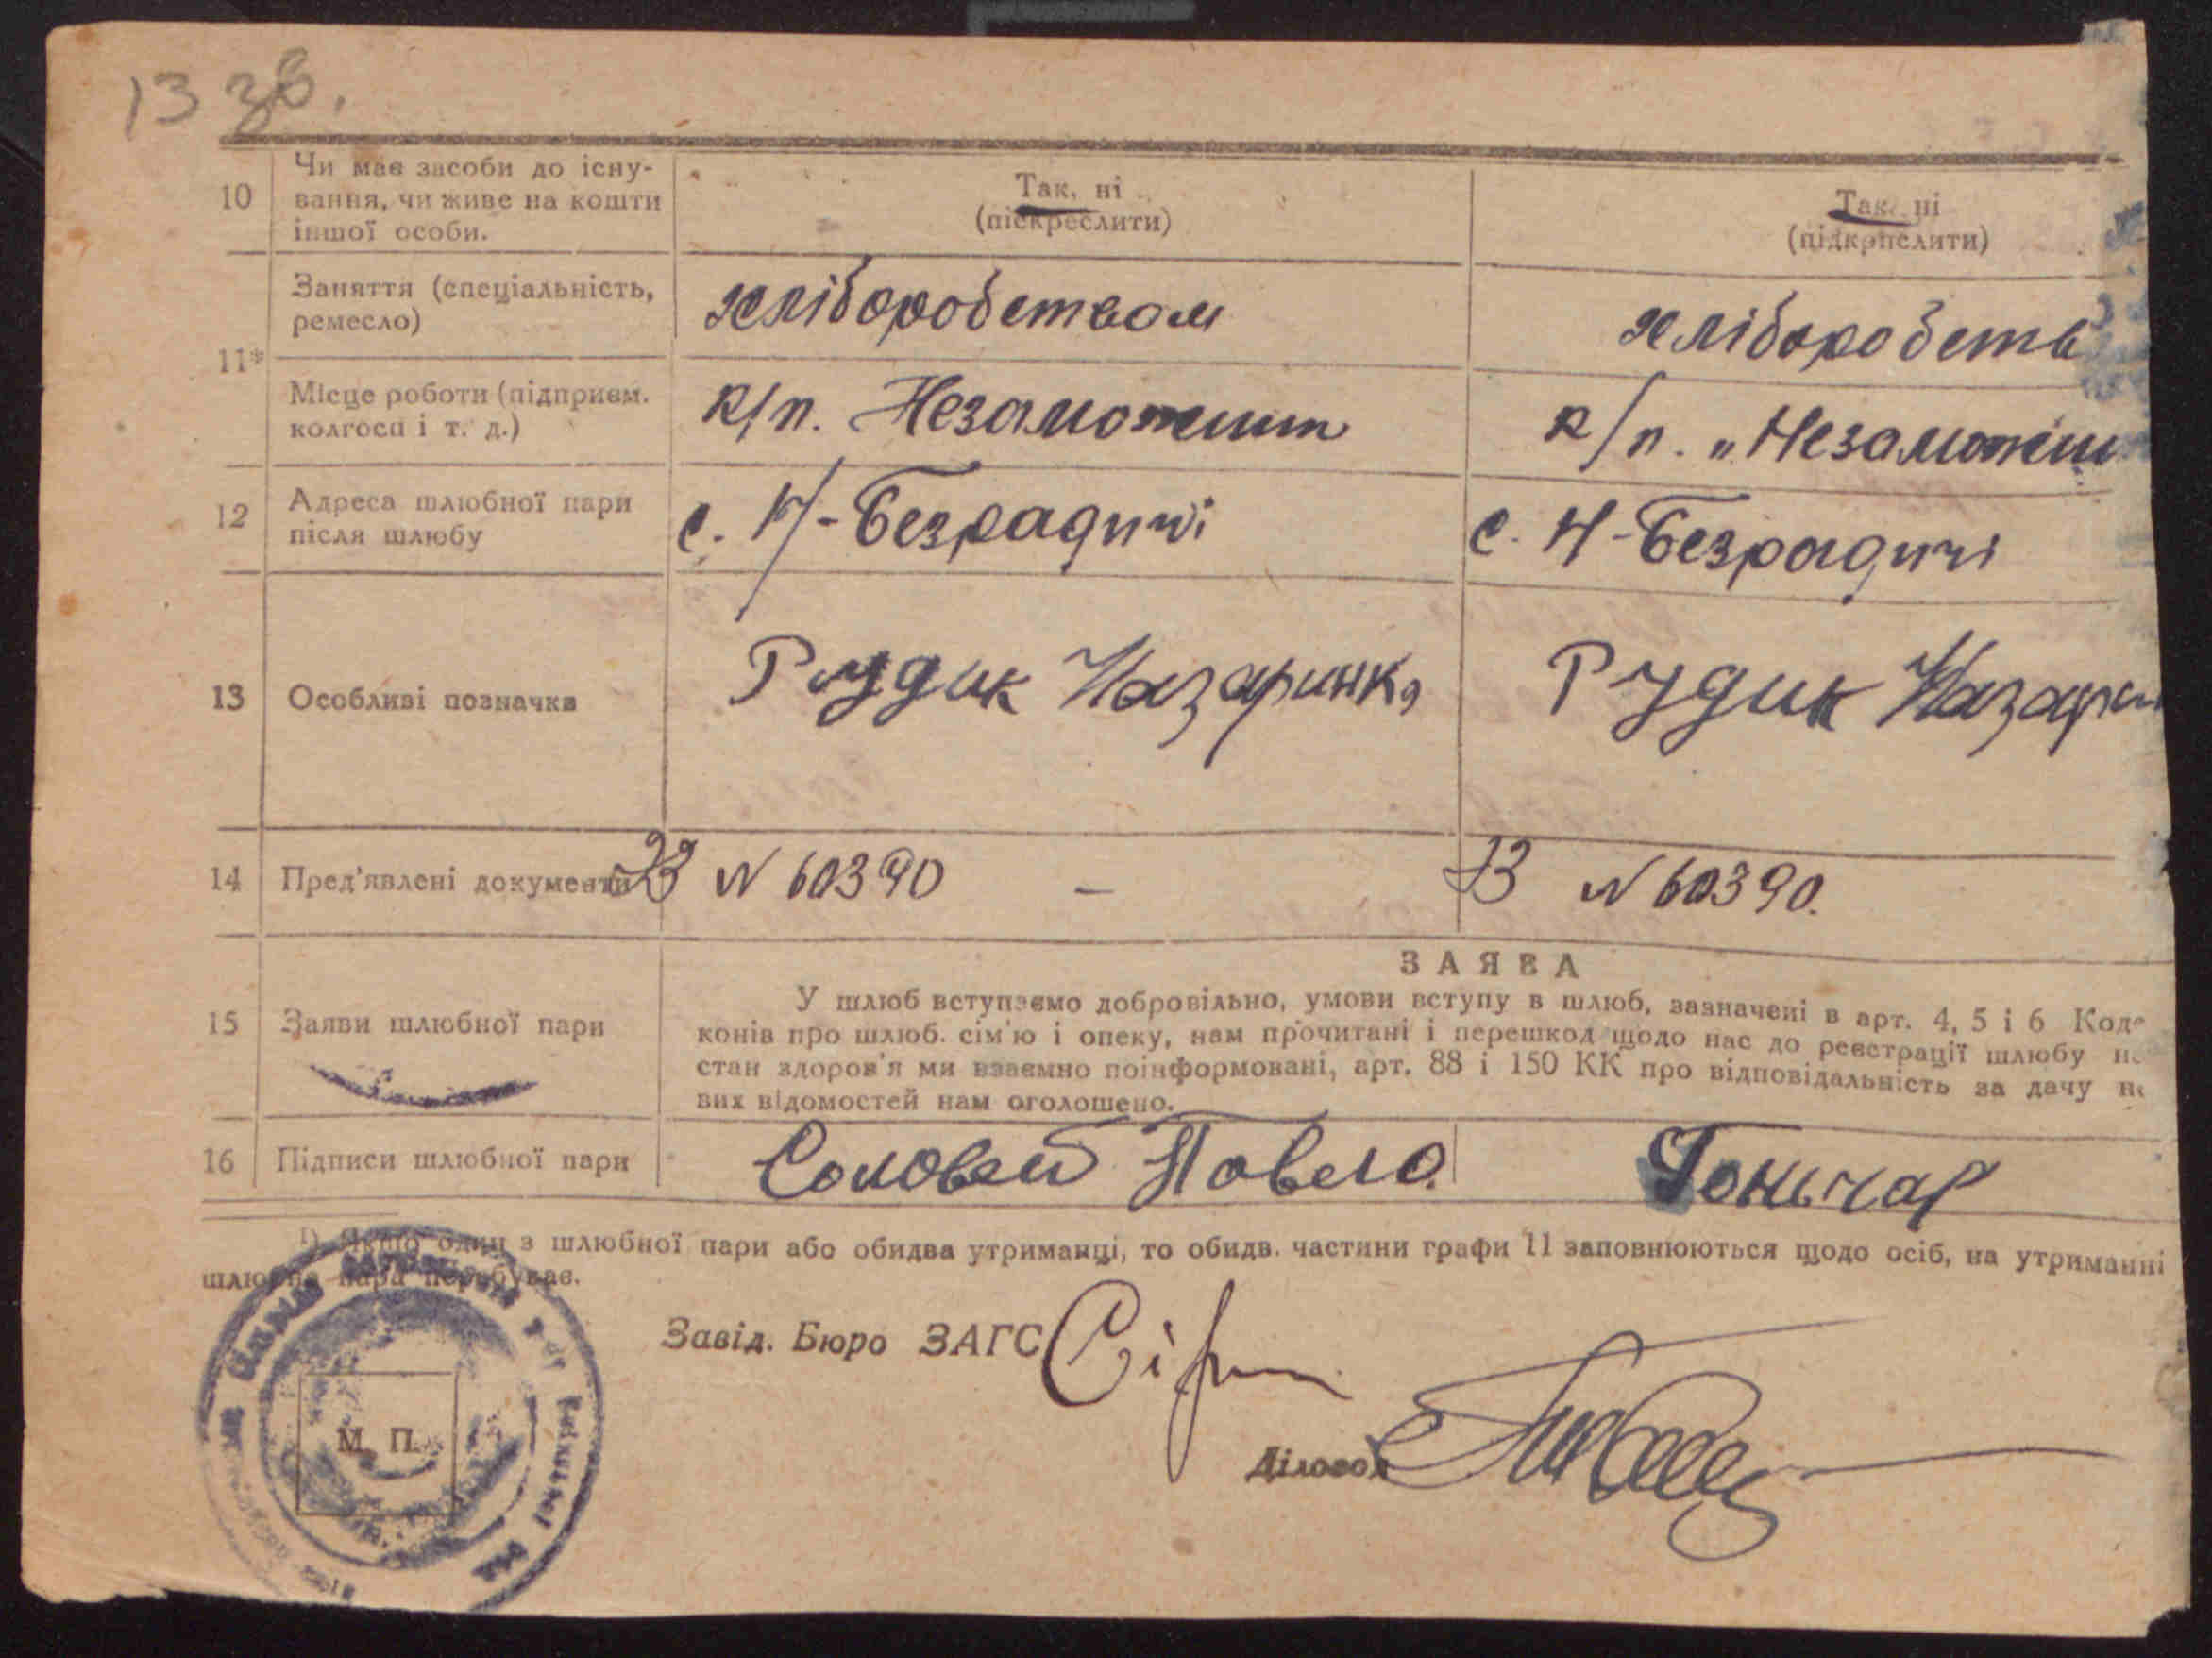 13 зв.
10
Чи має засоби до існу-
вання, чи живе на кошти
іншої особи.
Так, ні
(піскреслити)
Так, ні
(підкрпслити)
11*
Заняття (спеціальність,
ремесло)
хліборобством
хліборобств
Місце роботи (підприєм.
колгосп і т. д.)
к/п. Незаможник
к/п. „Незаможни
12
Адреса шлюбної пари
після шлюбу
с. Н-Безрадичі
с. Н-Безрадичі
13
Особливі позначки
Рудик Назаринка
Рудик Назари
14
Пред'явлені документи
N 60390 –
N 60390.
15
Заяви шлюбної пари
ЗАЯВА
У шлюб вступаємо добровільно, умови вступу в шлюб, зазначені в арт. 4, 5 і 6 Коде
конів про шлюб. сім'ю і опеку, нам прочитані і перешкод щодо нас до реєстрації шлюбу не
стан здоров'я ми взаємно поінформовані, арт. 88 і 150 КК про відповідальність за дачу не
вих відомостей нам оголошено.
16
Підписи шлюбної пари
Соловей Павело.
Гоньчар
1) Якщо один з шлюбної пари або обидва утриманці, то обидв. частини графи 11 заповнюються щодо осіб, на утриманні
шлюбна пара перебуває.
Завід. Бюро ЗАГС
Діловод
М. П.